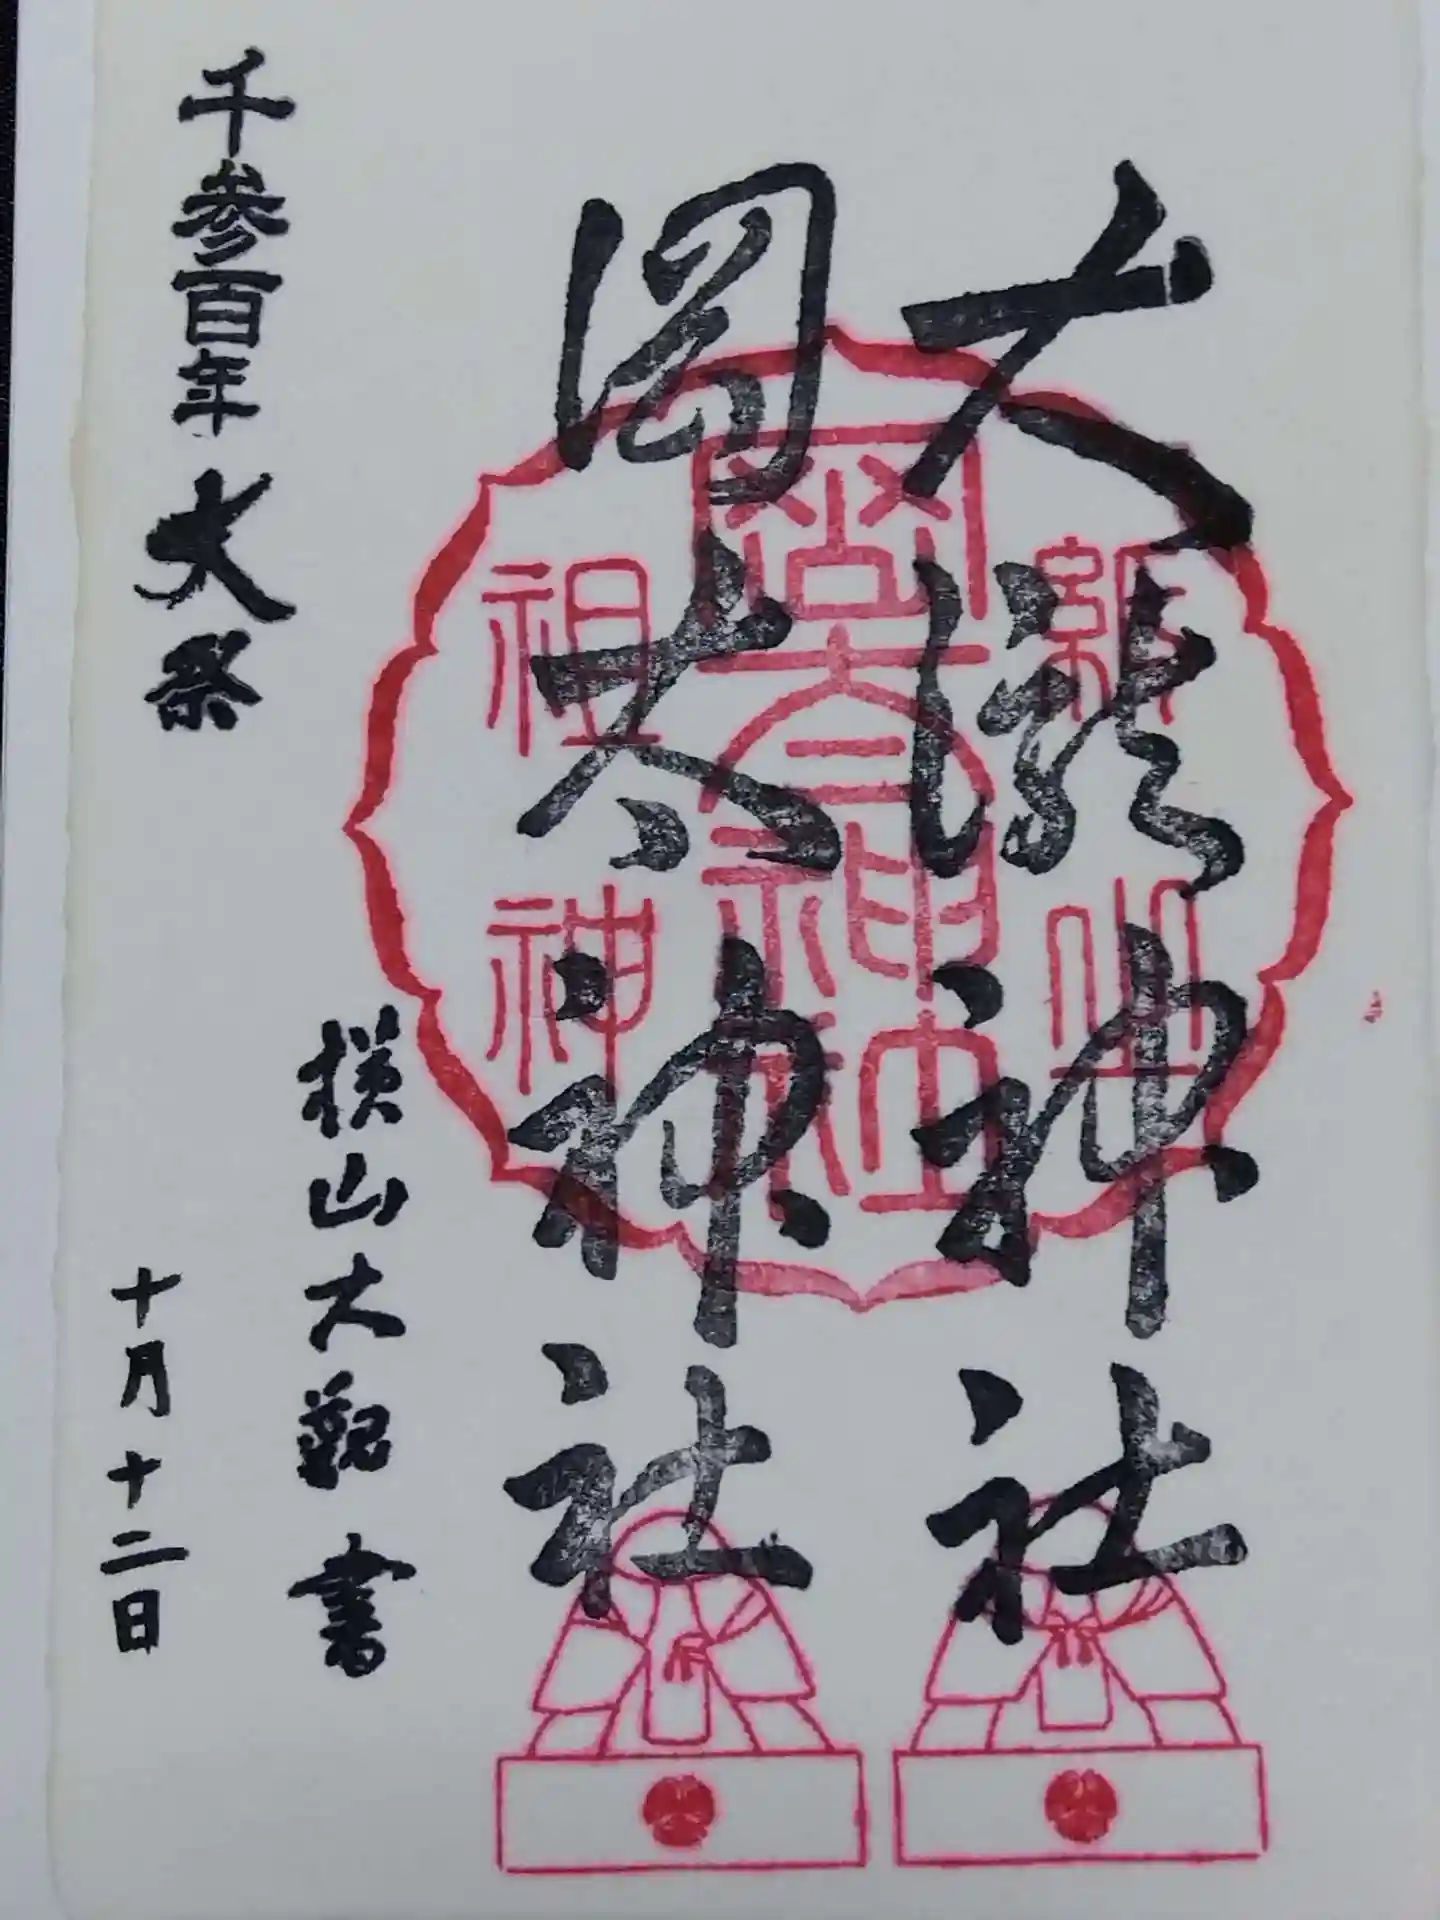 大瀧神社
岡太神社
紙祖
之神
岡太神社
横山大観書
千参百年大祭
十月十二日